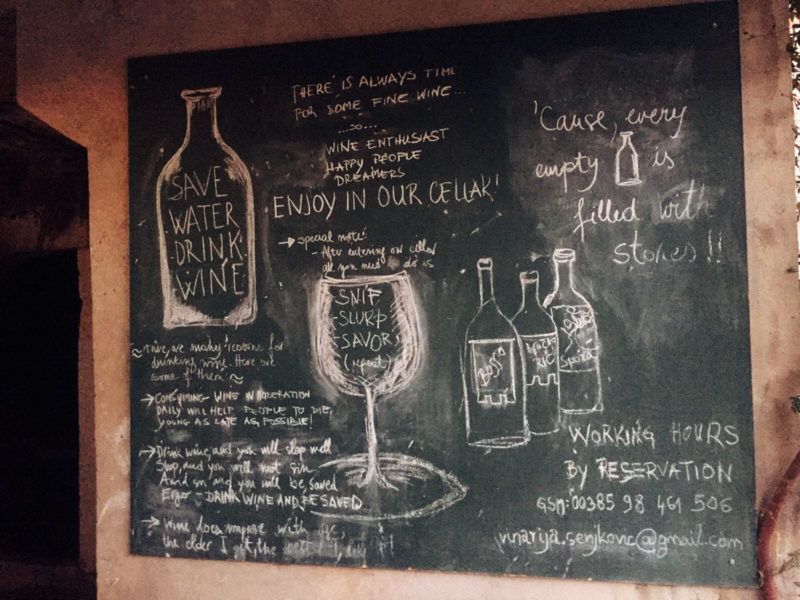 SAVE
WATER
DRINK
WINE
THERE IS ALWAYS TIME
FOR SOME FINE WINE...
...SO...
WINE ENTHUSIAST
HAPPY PEOPLE
DREAMERS
ENJOY IN OUR CELLAR!
→ special note!
- After entering our cellar
all you need to do is
- SNIF
- SLURP
- SAVOR
(repeat)
'Cause, every
empty is
filled with
stories!!
Bosso
~ There are many reasons for
drinking wine. Here are
some of them: ~
→ CONSUMING WINE IN MODERATION
DAILY WILL HELP PEOPLE TO DIE
YOUNG AS LATE AS POSSIBLE!
→ Drink wine, and you will sleep well
Sleep, and you will not sin
Avoid sin and you will be saved
Ergo - DRINK WINE AND BE SAVED
→ Wine does improve with age,
the older I get, the
WORKING HOURS
BY RESERVATION
GSM: 00385 98 461 506
vinarija.senjkovic@gmail.com